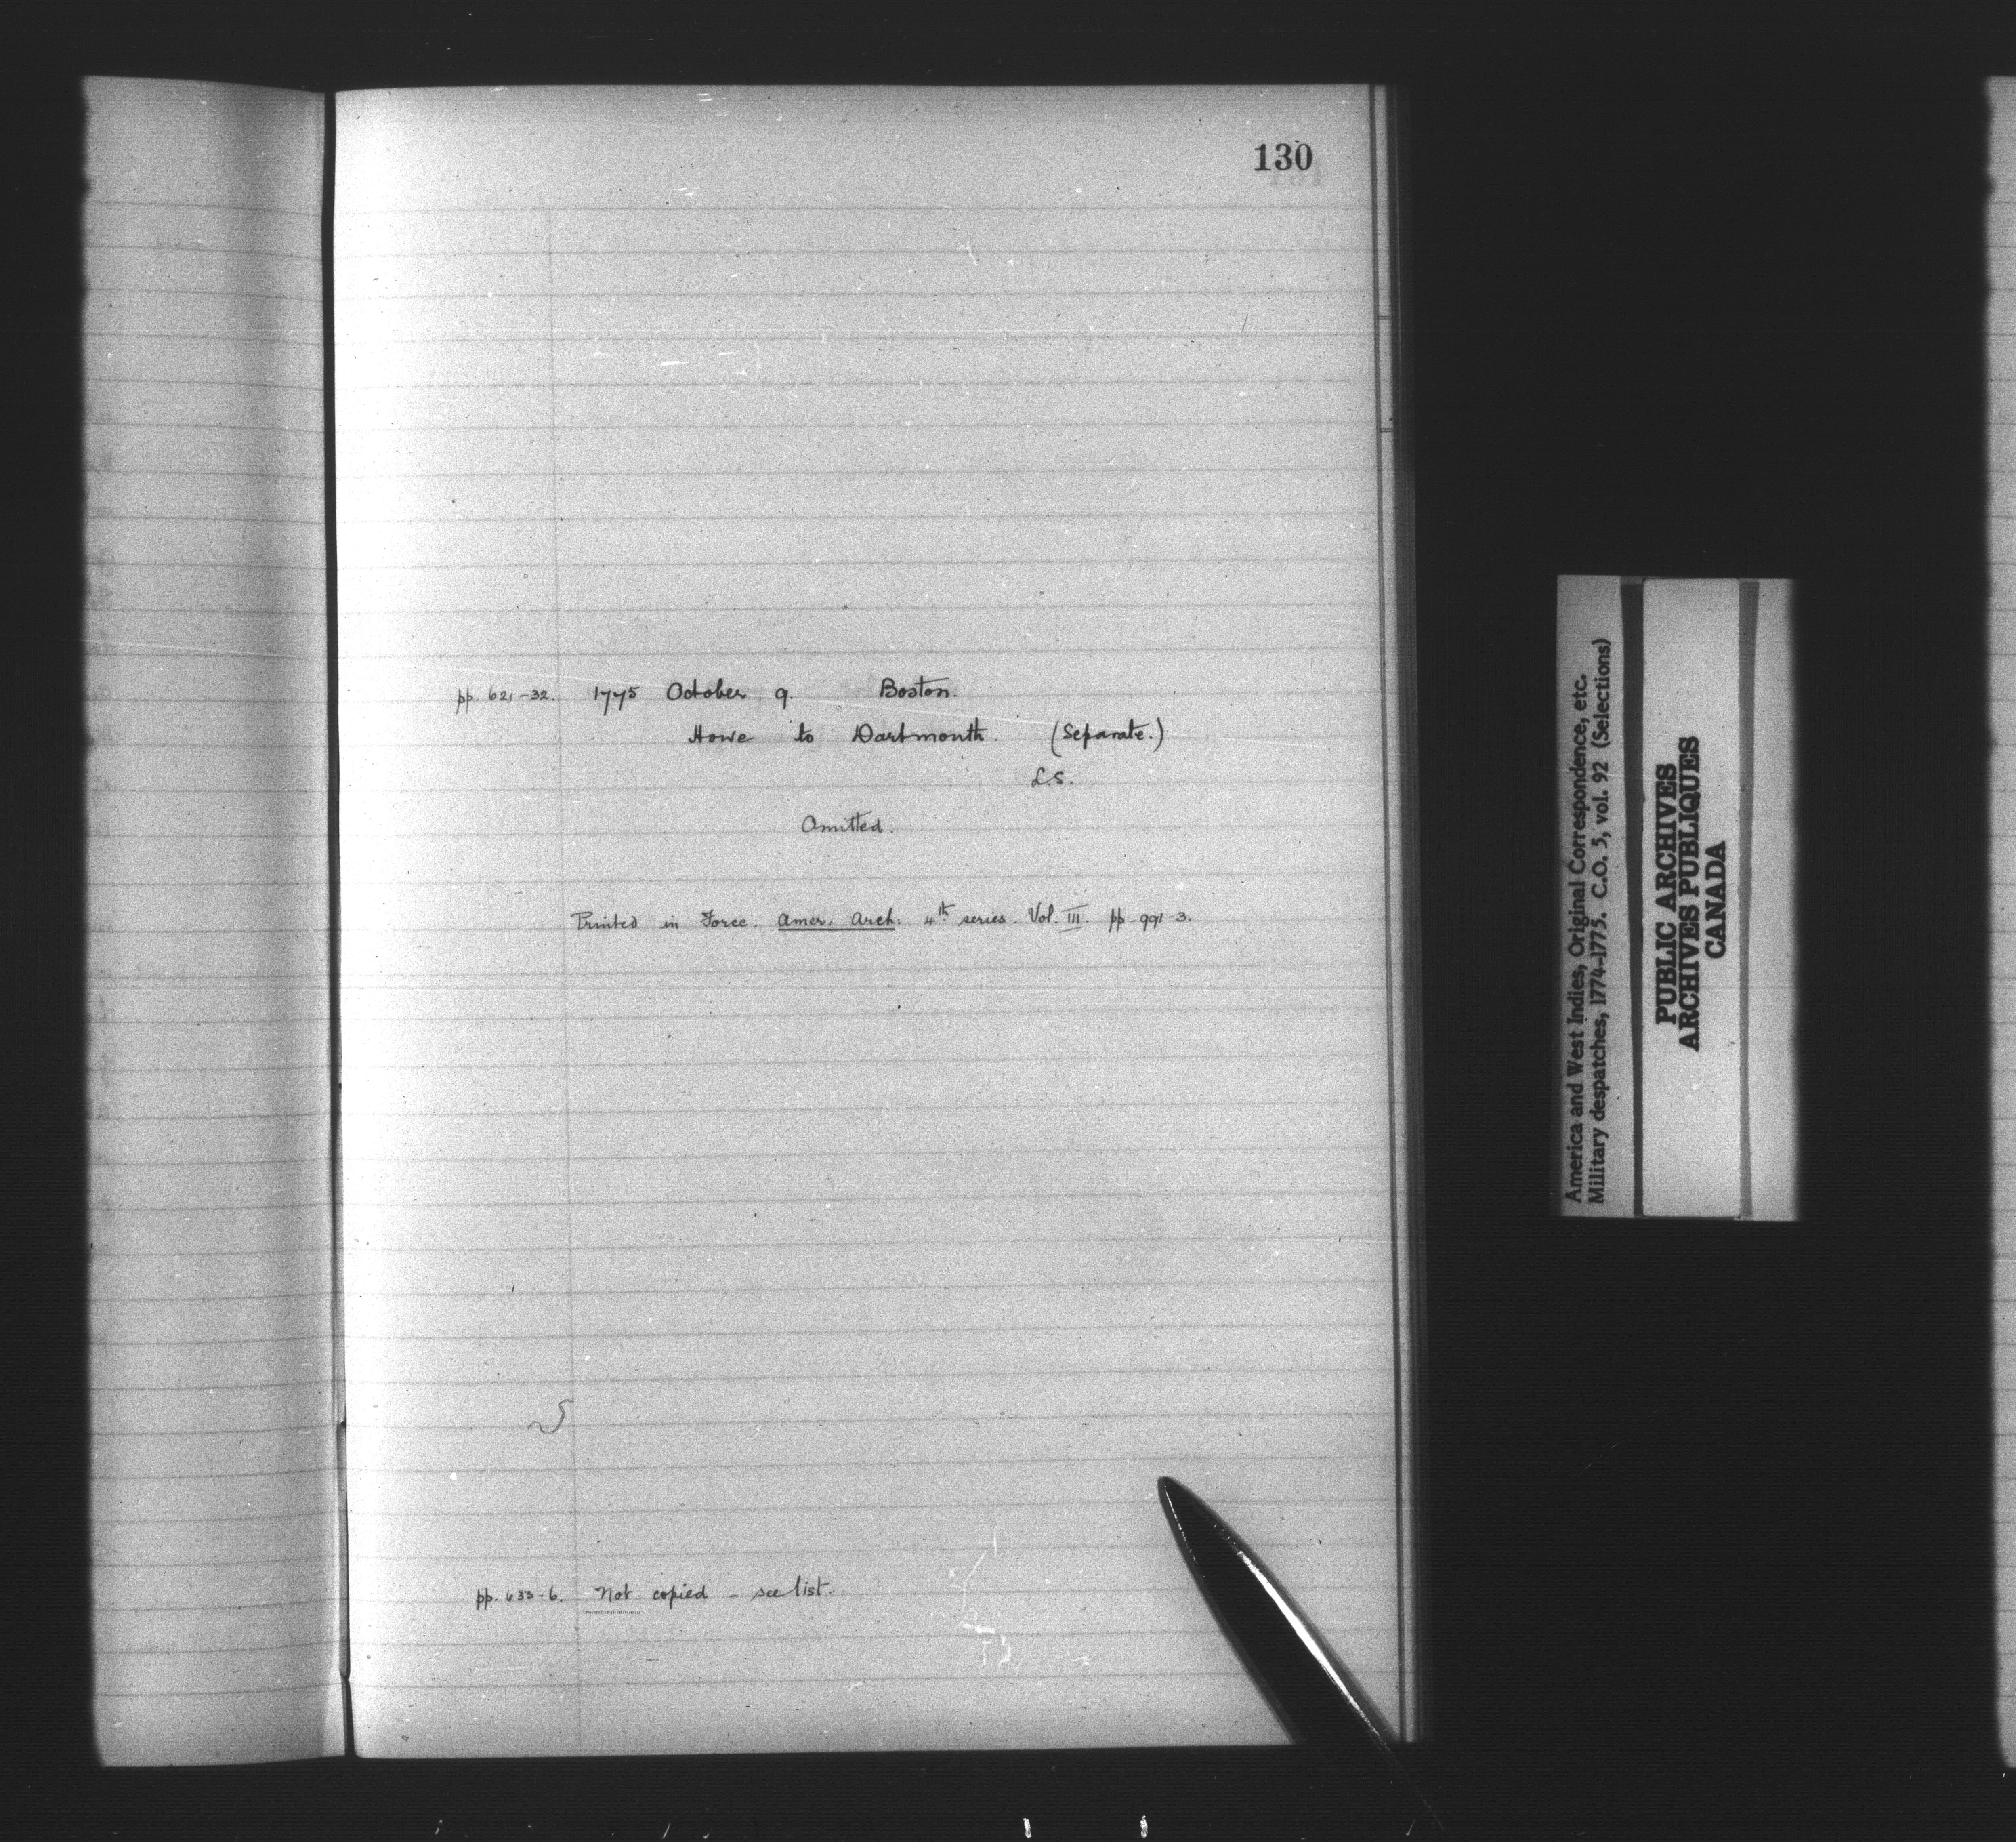 130
pp. 621-32. 1775 October 9. Boston.
Howe to Dartmouth. (Separate.)
L.S.
Omitted.
Printed in Force. Amer. Arch: 4th series. Vol. III. pp. 991-3.
pp. 633-6. Not copied - see list.
America and West Indies, Original Correspondence, etc.
Military despatches, 1774-1775. C.O. 5, vol. 92 (Selections)
PUBLIC ARCHIVES
ARCHIVES PUBLIQUES
CANADA